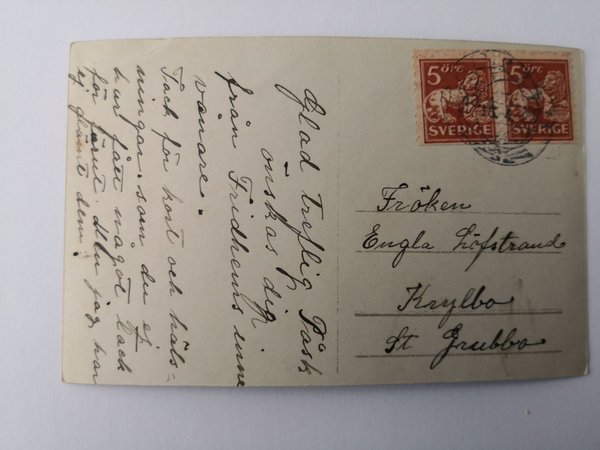 Glad treflig Påsk
önskas dig
från Fridhems inne
vånare.
Tack för kort och häls-
ningar. som du ej
har fått något Tack
för förut Men jag har
ej glömt dem.
5 ÖRE
SVERIGE
5 ÖRE
SVERIGE
Fröken
Engla Löfstrand
Krylbo
St Grubbo